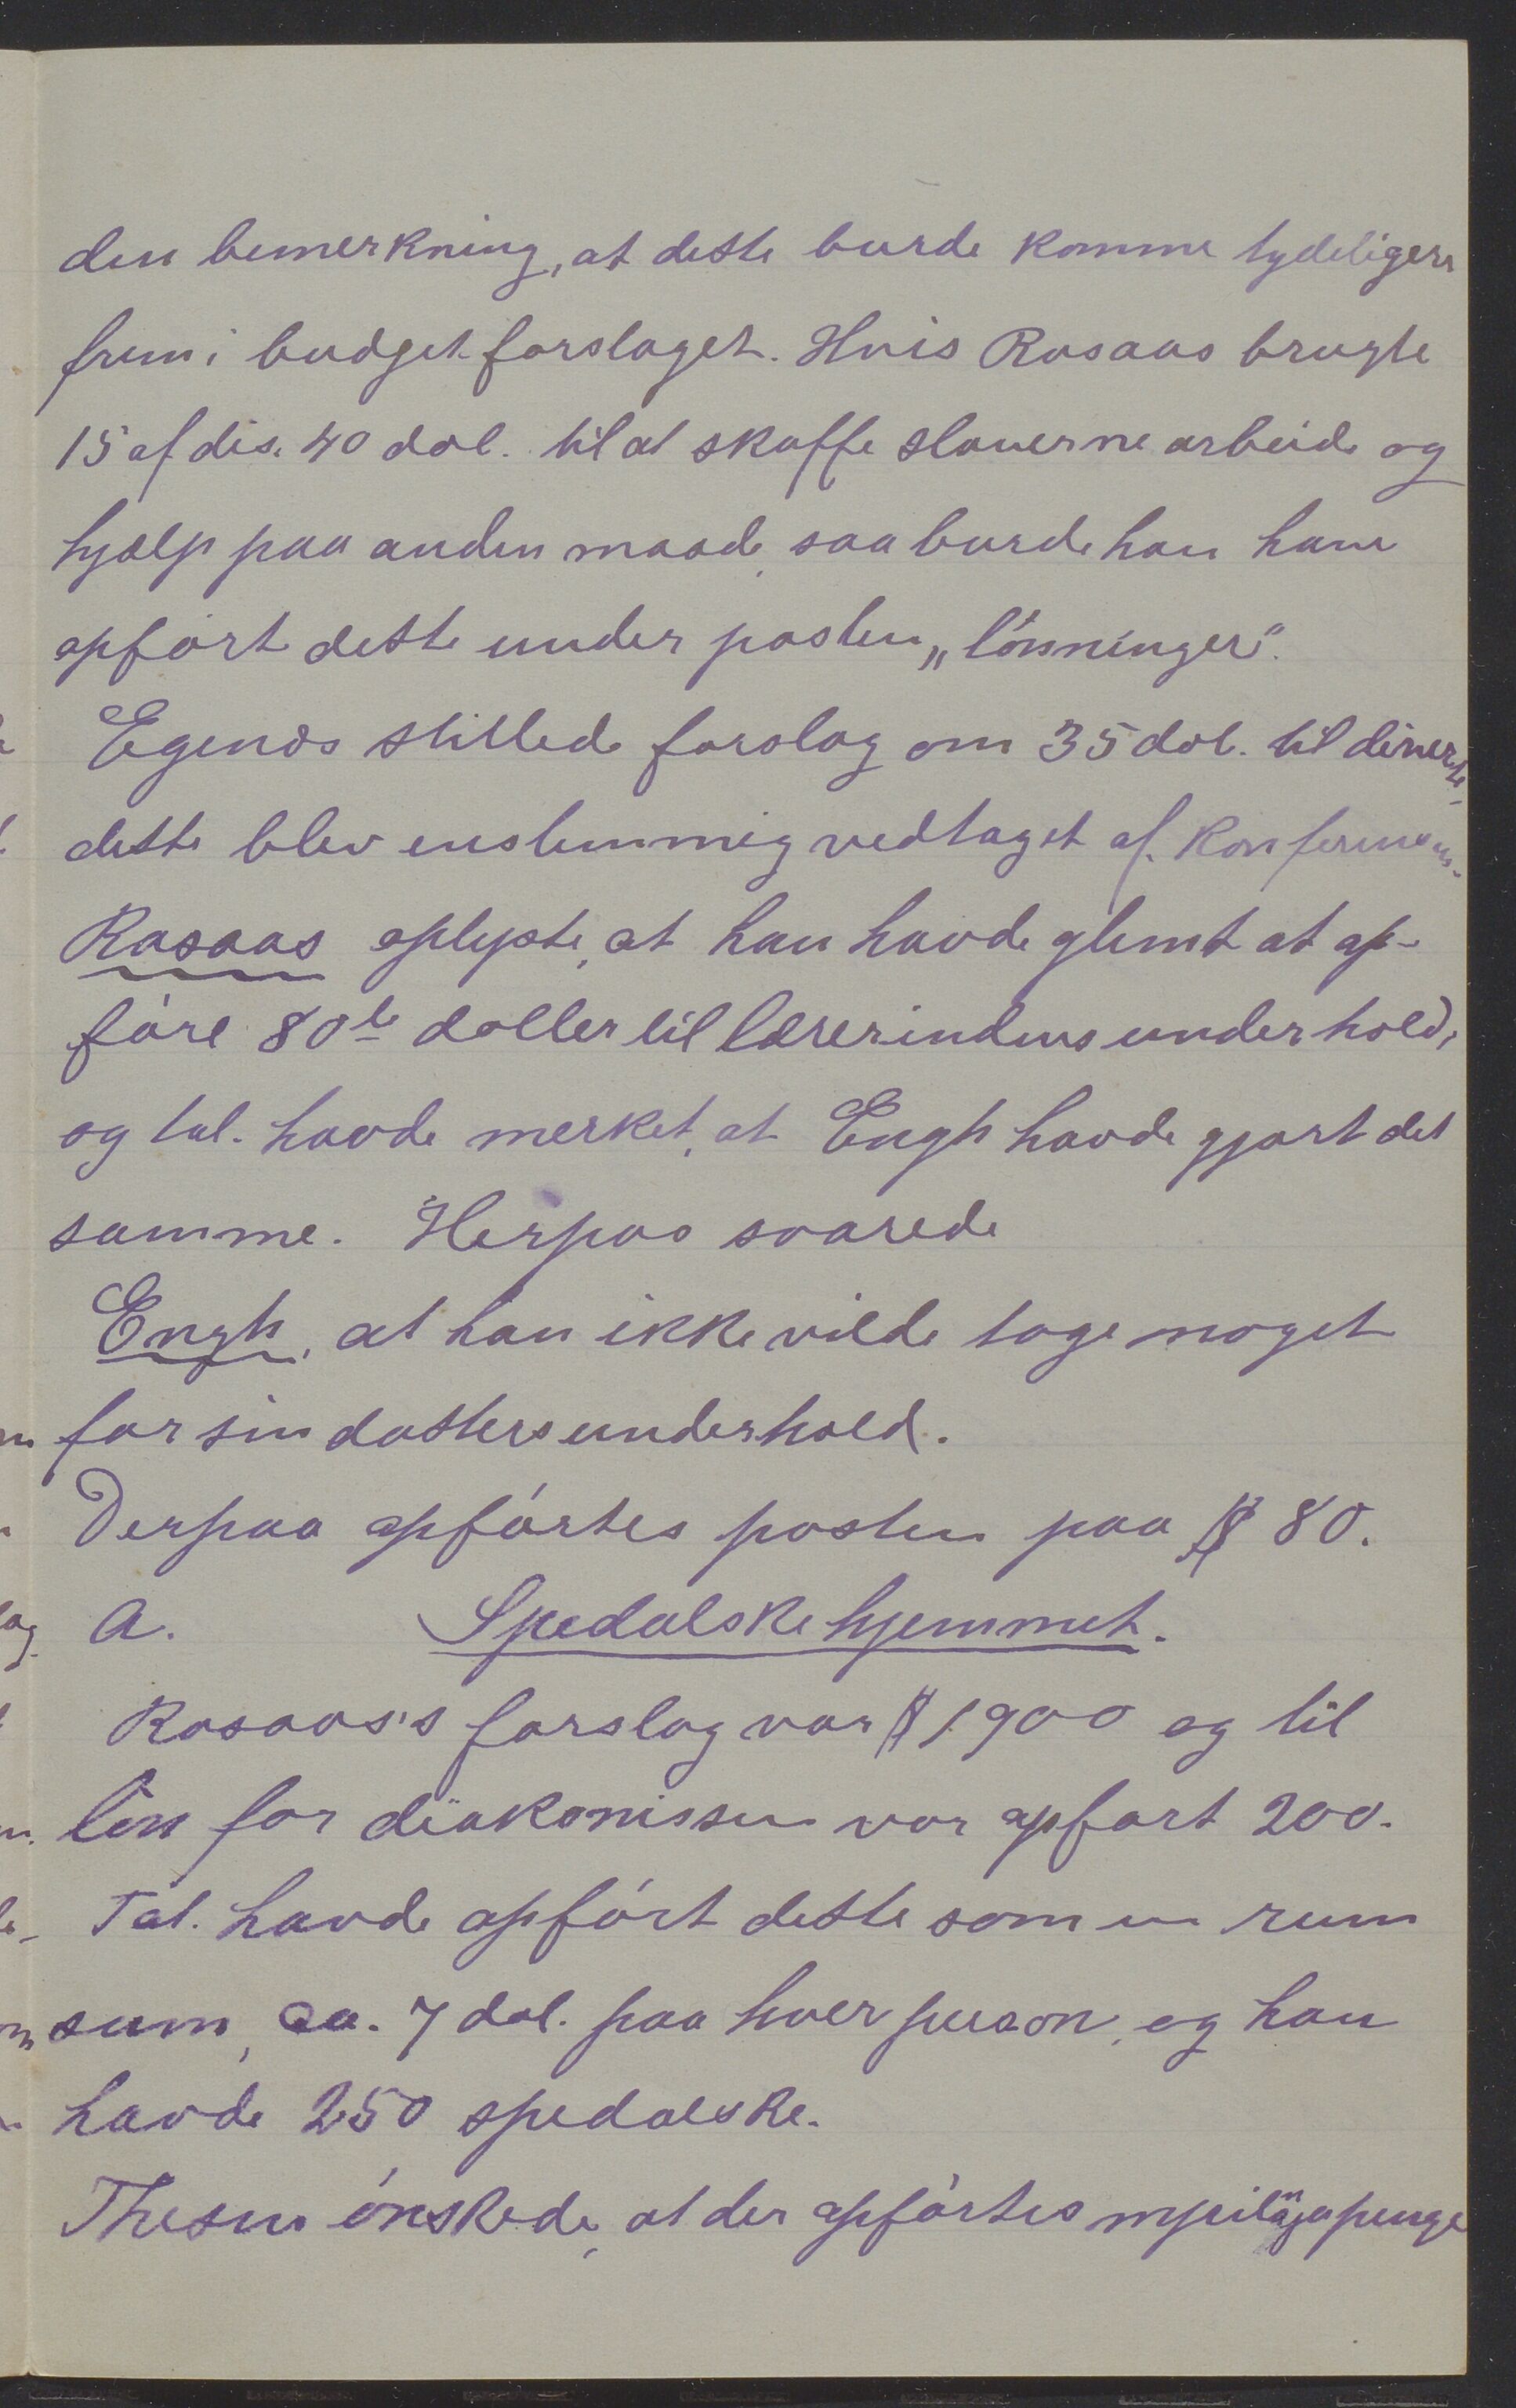 den bemerkning, at dette burde komme tydeligere
frem i budgetforslaget. Hvis Rosaas brugte
15 af dis. 40 dol. til at skaffe slaverne arbeide og
hjælp paa anden maade, saa burde han have
opført dette under posten „lønninger".
Egenæs stillede forslag om 35 dol. til diverse,
dette blev enstemmig vedtaget af konferensen.
Rosaas oplyste, at han havde glemt at op-
føre 80 doller til lærerindens underhold,
og tal. havde merket, at Engh havde gjort det
samme. Herpaa svarede
Engh, at han ikke vilde tage noget
for sin datters underhold.
Derpaa opførtes posten paa $ 80.
A. Spedalskehjemmet.
Rosaas's forslag var $ 1900 og til
løn for diakonissen var opført 200.
Tal. havde opført dette som en rum
sum, ca. 7 dol. paa hver person, og han
havde 250 spedalske.
Thesen ønskede, at der opførtes mpiläzapenge